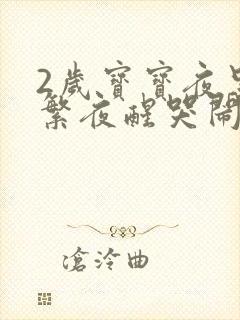 2歲寶寶夜
繁夜醒哭鬧
滄泠曲